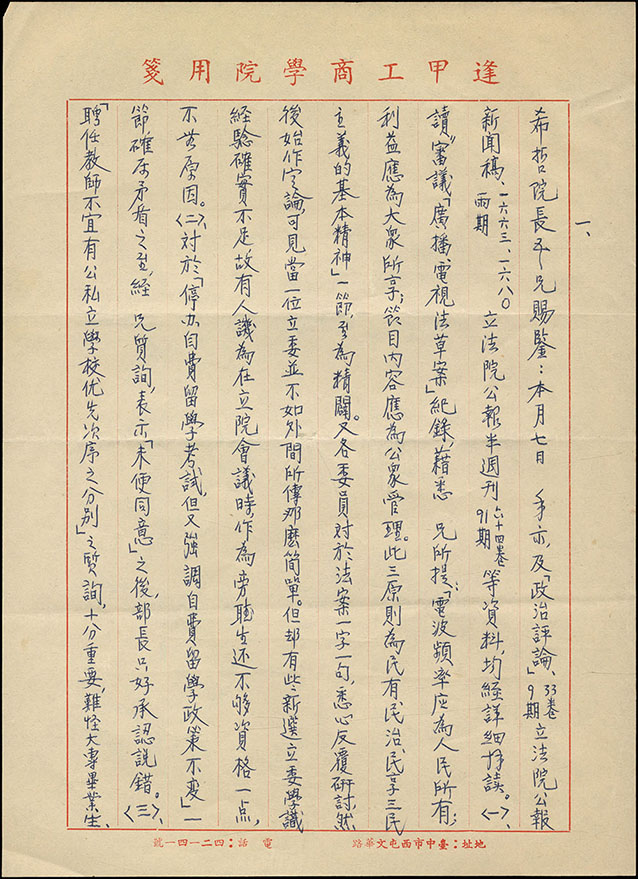 逢甲工商學院用箋
一、
希哲院長吾兄賜鑒:本月七日 手示,及「政治評論」33卷9期立法院公報
新聞稿、一六六三、一六八〇兩期 立法院公報半週刊六十四卷91期等資料,均經詳細拜讀。〈一〉、
讀"審議「廣播、電視法草案」紀錄,藉悉 兄所提:「電波頻率应為人民所有;
利益應為大衆所享;節目內容應為公衆管理。此三原則為民有、民治、民享三民
主義的基本精神」一節,至為精闢。又各委員対於法案一字一句,悉心反覆研討,然
後始作定論,可見當一位立委並不如外間所傳那麼簡單。但却有些新選立委學識
経驗確實不足,故有人譏為在立院會議時,作為旁聽生还不够資格一点,
不無原因。〈二〉、対於「停办自費留學考試,但又強調自費留學政策不変」一
節,確屬矛盾之至,經 兄質詢,表示「未便同意」之後,部長只好承認說錯。〈三〉、
「聘任教師不宜有公私立學校优先次序之分別」之質詢,十分重要,難怪大專畢業生,
地址:臺中市西屯文華路 電話:四二一四一號